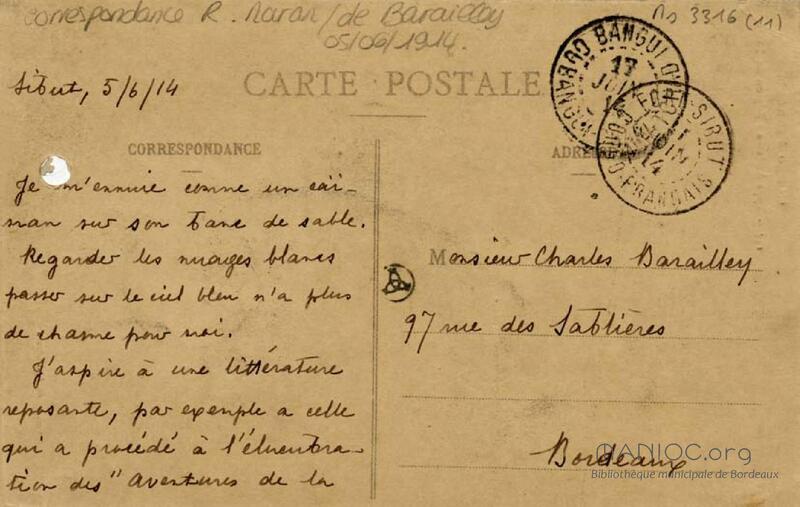 Correspondance R. Maran/de Barailley
05/06/1914.
Ms 3316 (11)
Sibut, 5/6/14
CARTE POSTALE
CORRESPONDANCE
Je m'ennuie comme un caï-
man sur son banc de sable.
Regarder les nuages blancs
passer sur le ciel bleu n'a plus
de charme pour moi.
J'aspire à une littérature
reposante, par exemple a celle
qui a procédé à l'élucubra-
tion des "Aventures de la
BANGUI
17
JUIN
FORT-SIBUT
14
CONGO-FRANÇAIS
Monsieur Charles Barailley
97 rue des Sablières
Bordeaux
MANIOC.org
Bibliothèque municipale de Bordeaux